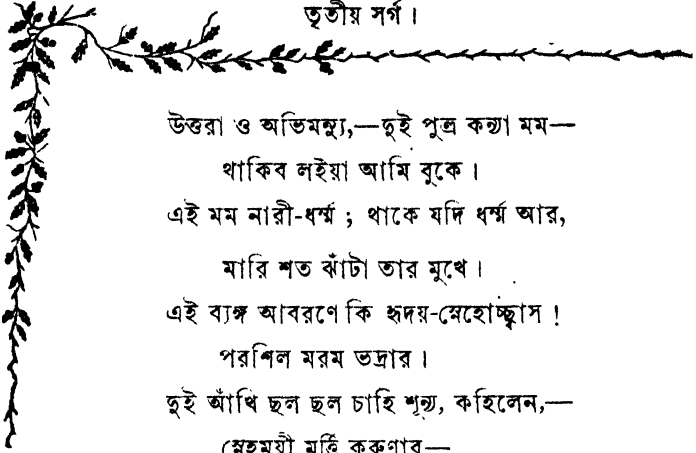 তৃতীয় সর্গ।
উত্তরা ও অভিমন্যু,—দুই পুত্র কন্যা মম—
থাকিব লইয়া আমি বুকে।
এই মম নারী-ধর্ম্ম ; থাকে যদি ধর্ম্ম আর,
মারি শত ঝাঁটা তার মুখে।
এই ব্যঙ্গ আবরণে কি হৃদয়-স্নেহোচ্ছ্বাস !
পরশিল মরম ভদ্রার।
দুই আঁখি ছল ছল চাহি শূন্য, কহিলেন,—
স্নেহময়ী মূর্ত্তি করুণার—